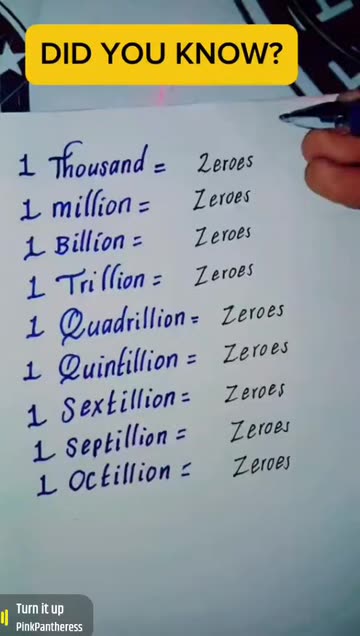 DID YOU KNOW?
1 Thousand = Zeroes
1 million = Zeroes
1 Billion = Zeroes
1 Trillion = Zeroes
1 Quadrillion = Zeroes
1 Quintillion = Zeroes
1 Sextillion = Zeroes
1 Septillion = Zeroes
1 Octillion = Zeroes
Turn it up
PinkPantheress